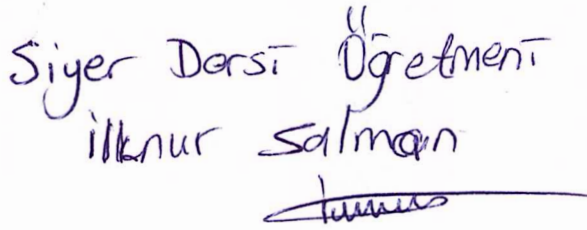 Siyer Dersi Öğretmeni
İlknur Salman